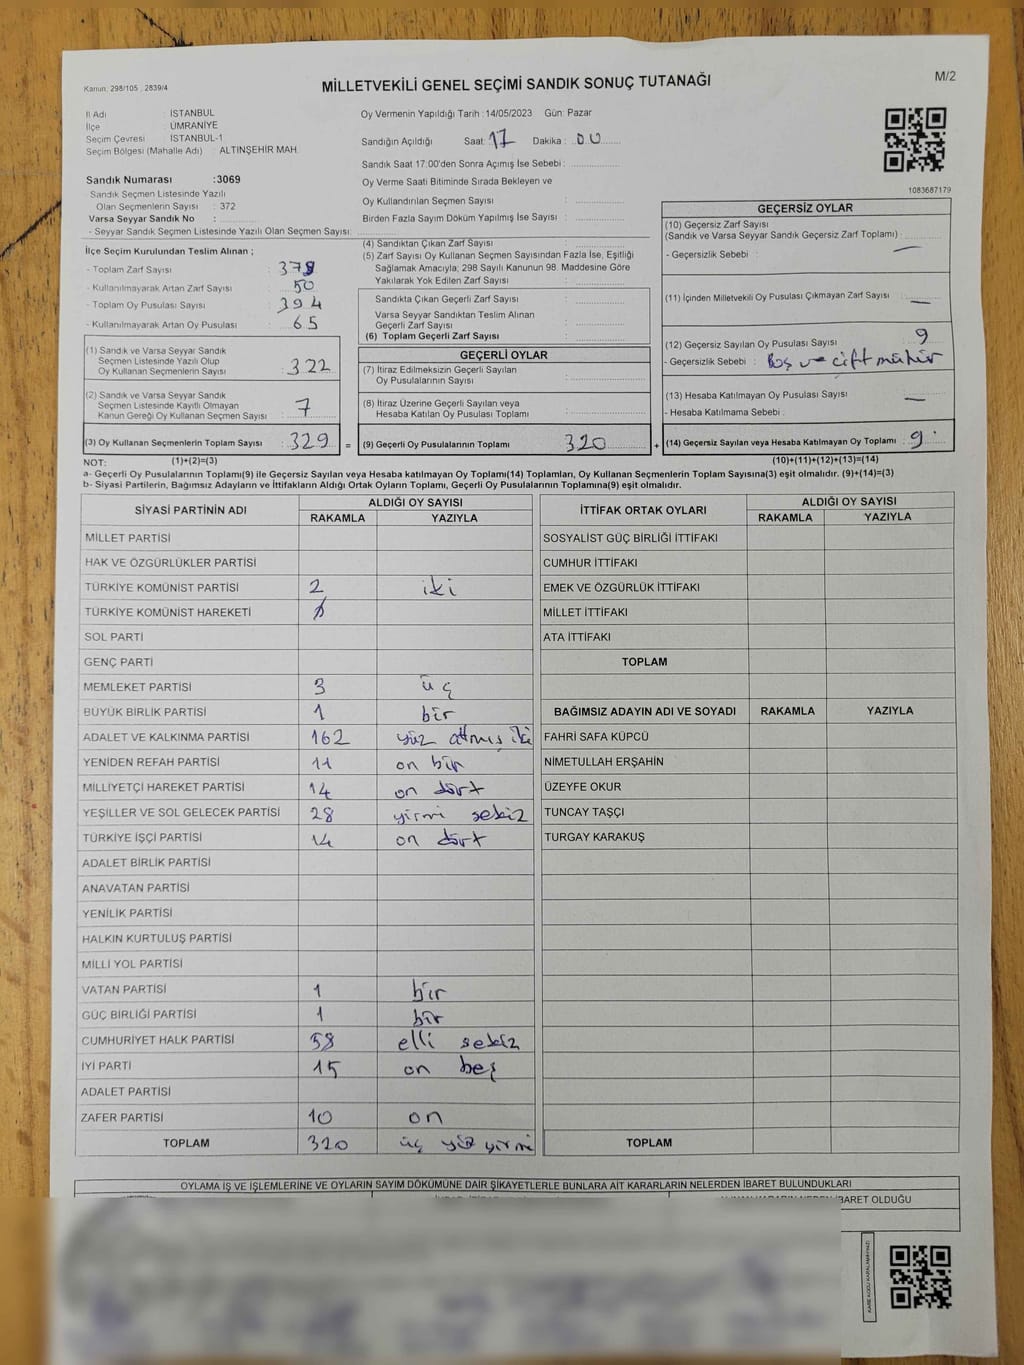 Kanun: 298/105 , 2839/4
MİLLETVEKİLİ GENEL SEÇİMİ SANDIK SONUÇ TUTANAĞI
M/2
İl Adı : İSTANBUL
İlçe : ÜMRANİYE
Seçim Çevresi : İSTANBUL-1
Seçim Bölgesi (Mahalle Adı) : ALTINŞEHİR MAH.
Oy Vermenin Yapıldığı Tarih :14/05/2023 Gün: Pazar
Sandığın Açıldığı Saat: 17 Dakika : 00
Sandık Saat 17:00'den Sonra Açımış İse Sebebi :
Sandık Numarası :3069
Sandık Seçmen Listesinde Yazılı
Olan Seçmenlerin Sayısı : 372
Varsa Seyyar Sandık No :
- Seyyar Sandık Seçmen Listesinde Yazılı Olan Seçmen Sayısı:
Oy Verme Saati Bitiminde Sırada Bekleyen ve
Oy Kullandırılan Seçmen Sayısı :
Birden Fazla Sayım Döküm Yapılmış İse Sayısı :
1083687179
İlçe Seçim Kurulundan Teslim Alınan ;
- Toplam Zarf Sayısı :
- Kullanılmayarak Artan Zarf Sayısı : 50
- Toplam Oy Pusulası Sayısı : 394
- Kullanılmayarak Artan Oy Pusulası : 65
(1) Sandık ve Varsa Seyyar Sandık
Seçmen Listesinde Yazılı Olup
Oy Kullanan Seçmenlerin Sayısı : 322
(2) Sandık ve Varsa Seyyar Sandık
Seçmen Listesinde Kayıtlı Olmayan
Kanun Gereği Oy Kullanan Seçmen Sayısı : 7
(3) Oy Kullanan Seçmenlerin Toplam Sayısı : 329 =
(4) Sandıktan Çıkan Zarf Sayısı :
(5) Zarf Sayısı Oy Kullanan Seçmen Sayısından Fazla İse, Eşitliği
Sağlamak Amacıyla; 298 Sayılı Kanunun 98. Maddesine Göre
Yakılarak Yok Edilen Zarf Sayısı :
Sandıkta Çıkan Geçerli Zarf Sayısı :
Varsa Seyyar Sandıktan Teslim Alınan
Geçerli Zarf Sayısı :
(6) Toplam Geçerli Zarf Sayısı :
GEÇERLİ OYLAR
(7) İtiraz Edilmeksizin Geçerli Sayılan
Oy Pusulalarının Sayısı :
(8) İtiraz Üzerine Geçerli Sayılan veya
Hesaba Katılan Oy Pusulası Toplamı :
(9) Geçerli Oy Pusulalarının Toplamı : 320 +
GEÇERSİZ OYLAR
(10) Geçersiz Zarf Sayısı
(Sandık ve Varsa Seyyar Sandık Geçersiz Zarf Toplamı) : —
- Geçersizlik Sebebi :
(11) İçinden Milletvekili Oy Pusulası Çıkmayan Zarf Sayısı : —
(12) Geçersiz Sayılan Oy Pusulası Sayısı : 9
- Geçersizlik Sebebi : Boş ve çift mühür
(13) Hesaba Katılmayan Oy Pusulası Sayısı : —
- Hesaba Katılmama Sebebi :
(14) Geçersiz Sayılan veya Hesaba Katılmayan Oy Toplamı : 9
NOT: (1)+(2)=(3) (10)+(11)+(12)+(13)=(14)
a- Geçerli Oy Pusulalarının Toplamı(9) ile Geçersiz Sayılan veya Hesaba katılmayan Oy Toplamı(14) Toplamları, Oy Kullanan Seçmenlerin Toplam Sayısına(3) eşit olmalıdır. (9)+(14)=(3)
b- Siyasi Partilerin, Bağımsız Adayların ve İttifakların Aldığı Ortak Oyların Toplamı, Geçerli Oy Pusulalarının Toplamına(9) eşit olmalıdır.
SİYASİ PARTİNİN ADI ALDIĞI OY SAYISI
RAKAMLA YAZIYLA
MİLLET PARTİSİ
HAK VE ÖZGÜRLÜKLER PARTİSİ
TÜRKİYE KOMÜNİST PARTİSİ 2 iki
TÜRKİYE KOMÜNİST HAREKETİ
SOL PARTİ
GENÇ PARTİ
MEMLEKET PARTİSİ 3 üç
BÜYÜK BİRLİK PARTİSİ 1 bir
ADALET VE KALKINMA PARTİSİ 162 yüz atmış iki
YENİDEN REFAH PARTİSİ 11 on bir
MİLLİYETÇİ HAREKET PARTİSİ 14 on dört
YEŞİLLER VE SOL GELECEK PARTİSİ 28 yirmi sekiz
TÜRKİYE İŞÇİ PARTİSİ 14 on dört
ADALET BİRLİK PARTİSİ
ANAVATAN PARTİSİ
YENİLİK PARTİSİ
HALKIN KURTULUŞ PARTİSİ
MİLLİ YOL PARTİSİ
VATAN PARTİSİ 1 bir
GÜÇ BİRLİĞİ PARTİSİ 1 bir
CUMHURİYET HALK PARTİSİ 58 elli sekiz
İYİ PARTİ 15 on beş
ADALET PARTİSİ
ZAFER PARTİSİ 10 on
TOPLAM 320 üç yüz yirmi
İTTİFAK ORTAK OYLARI ALDIĞI OY SAYISI
RAKAMLA YAZIYLA
SOSYALİST GÜÇ BİRLİĞİ İTTİFAKI
CUMHUR İTTİFAKI
EMEK VE ÖZGÜRLÜK İTTİFAKI
MİLLET İTTİFAKI
ATA İTTİFAKI
TOPLAM
BAĞIMSIZ ADAYIN ADI VE SOYADI RAKAMLA YAZIYLA
FAHRİ SAFA KÜPCÜ
NİMETULLAH ERŞAHİN
ÜZEYFE OKUR
TUNCAY TAŞÇI
TURGAY KARAKUŞ
TOPLAM
OYLAMA İŞ VE İŞLEMLERİNE VE OYLARIN SAYIM DÖKÜMÜNE DAİR ŞİKAYETLERLE BUNLARA AİT KARARLARIN NELERDEN İBARET BULUNDUKLARI
İBARET OLDUĞU